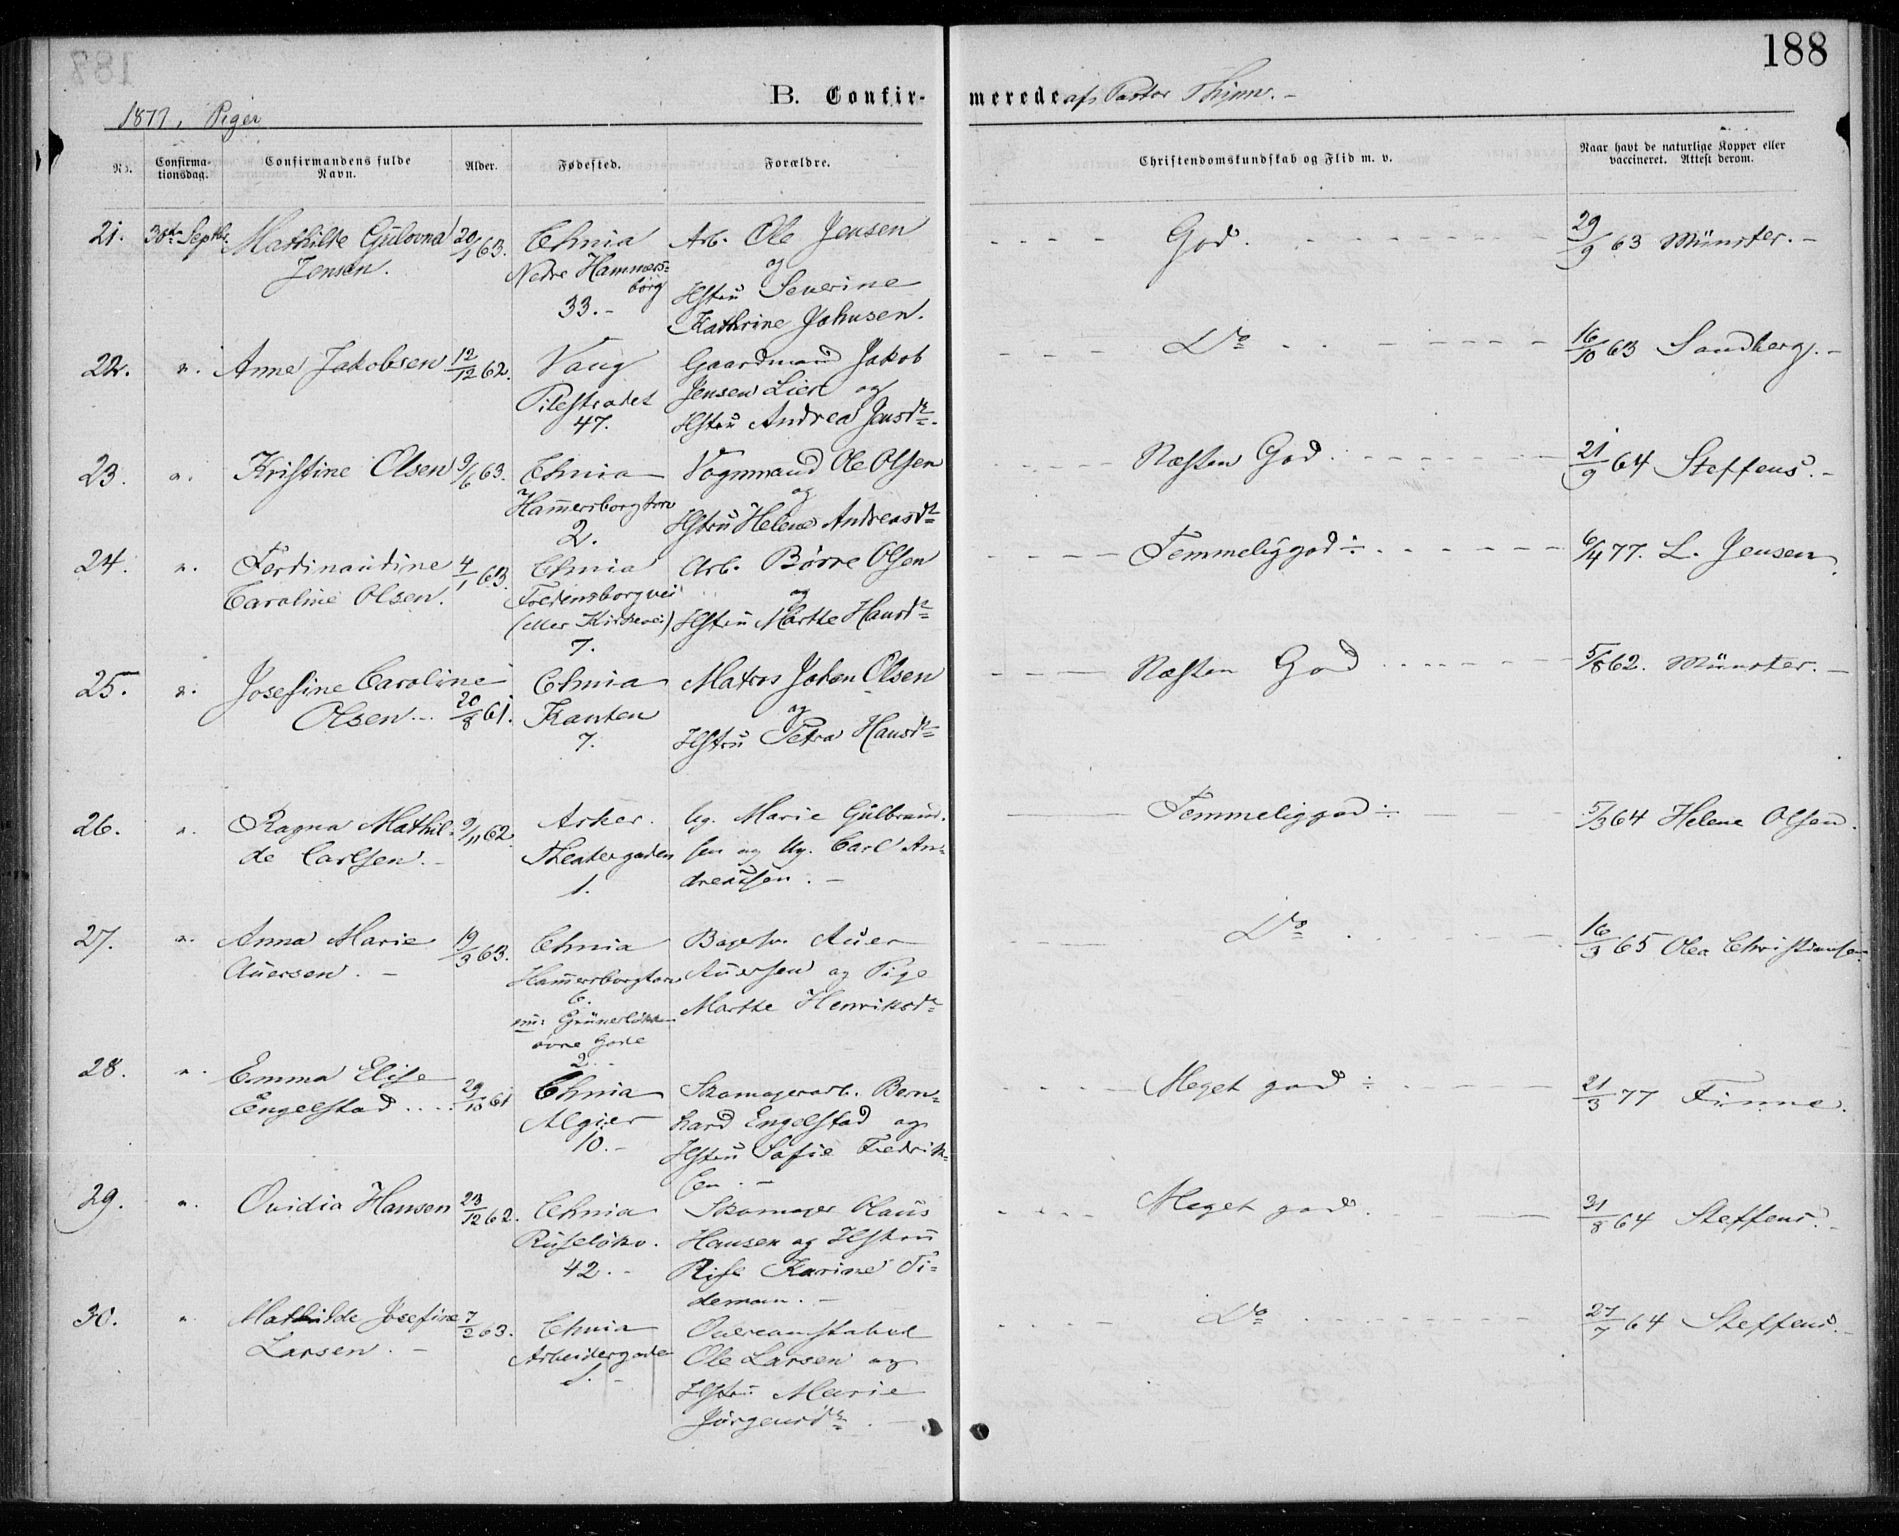 188
B. Confirmerede af Pastor Thinn. -
1877, Piger
No. Confirmationsdag. Confirmandens fulde Navn. Alder. Fødested. Forældre. Christendomskundskab og Flid m. v. Naar havt de naturlige Kopper eller vaccineret. Attest derom.
21. 30te Septbr. Mathilde Gulovna 20/1 63. Chnia Arb. Ole Jensen God. 29/9 63 Münster. -
Jensen. Nedre Hammers= og
borg Hstru Severine
33. - Kathrine Johnsen.
22. ". Anne Jakobsen 12/12 62. Vang Gaardmand Jakob Do 16/10 63 Sandberg. -
Pilestradet Jensen Lien og
47. Hstru Andrea Jensdr.
23. ". Kristine Olsen 9/6 63. Chnia Vognmand Ole Olsen Næsten God. 21/9 64 Steffens. -
Hamersborgtorv og
2. Hstru Helene Andreasdr
24. ". Ferdinandine 4/1 63. Chnia Arb. Börre Olsen Temmeliggod ÷ 6/4 77. L. Jensen.
Caroline Olsen. Fredensborgvei og
(eller Kirkevei) Hstru Marthe Hansdr
7.
25. ". Josefine Caroline Chnia Matros Johan Olsen Næsten God 5/8 62. Münster. -
Olsen. - 20/8 61. Kanten og
7. Hstru Petra Hansdr
26. ". Ragna Mathil- 9/11 62. Asker. Ug. Marie Gulbrand- Temmeliggod ÷ 5/3 64 Helene Olsen.
de Carlsen. - Theatergaden sen og Ug. Carl An-
1. dreassen. -
27. ". Anna Marie 19/3 63. Chnia Bagersv. Auer Do 16/3 65 Olea Christiansen
Auersen. - Hamersborgtorv Auersen og Pige
6. Marthe Henriksdr
nu: Grünerløkken
øvre Gade
2. -
28. ". Emma Elise 29/10 61 Chnia Skomagerarb. Bern- Meget god ÷ 21/3 77 Finne.
Engelstad. Algier hard Engelstad og
10. - Hstru Sofie Fredrik-
sen. -
29. ". Ovidia Hansen 23/12 62. Chnia Skomager Olaus Meget god. 31/8 64 Steffens. -
Ruseløkv. Hansen og Hstru
42. - Elise Karine Ti-
demann. -
30. ". Mathilde Josefine 7/2 63. Chnia Overconstabel Do 27/7 64 Steffens. -
Larsen. - Arbeidergade Ole Larsen og
1. - Hstru Marie
Jörgensdr. -